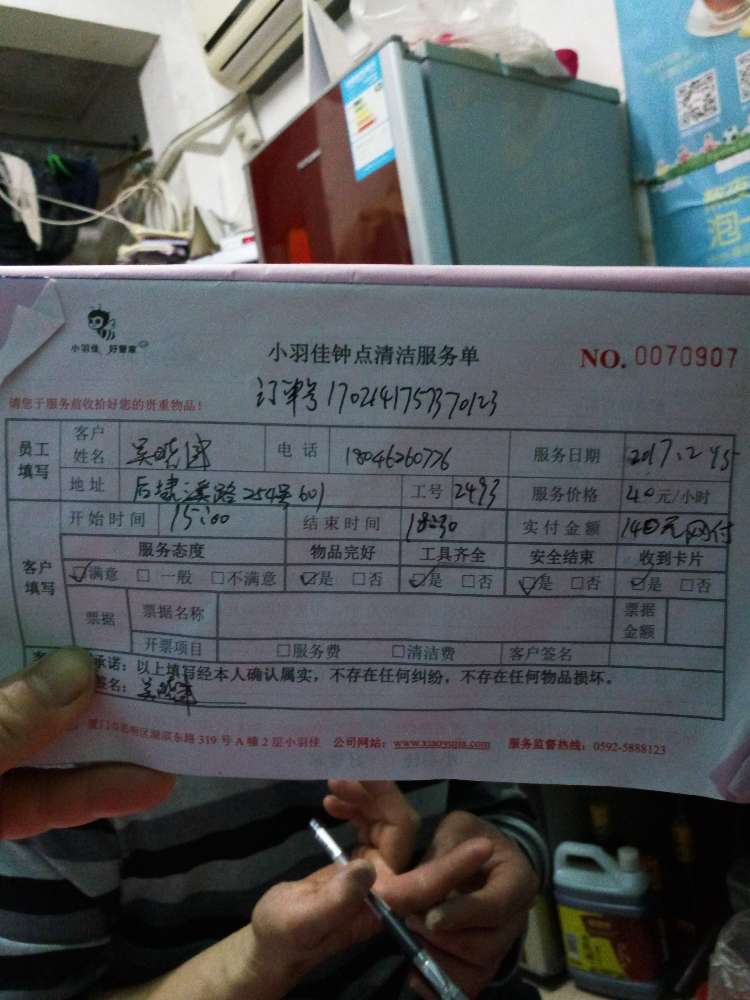 泡
小羽佳 好管家
小羽佳钟点清洁服务单
NO. 0070907
请您于服务前收拾好您的贵重物品!
订单号
员工填写
客户姓名 吴晓
电话 18046260776
服务日期
地址 路254号601
工号 2493
服务价格 40元/小时
开始时间 15:00
结束时间 18:30
实付金额 140元网付
客户填写
服务态度 物品完好 工具齐全 安全结束 收到卡片
☑满意 □一般 □不满意 ☑是 □否 ☑是 □否 ☑是 □否 ☑是 □否
票据 票据名称 票据金额
开票项目 □服务费 □清洁费 客户签名
承诺:以上填写经本人确认属实,不存在任何纠纷,不存在任何物品损坏。
签名:吴晓
东路319号A幢2层小羽佳 公司网站:www.xiaoyujia.com 服务监督热线:0592-5888123